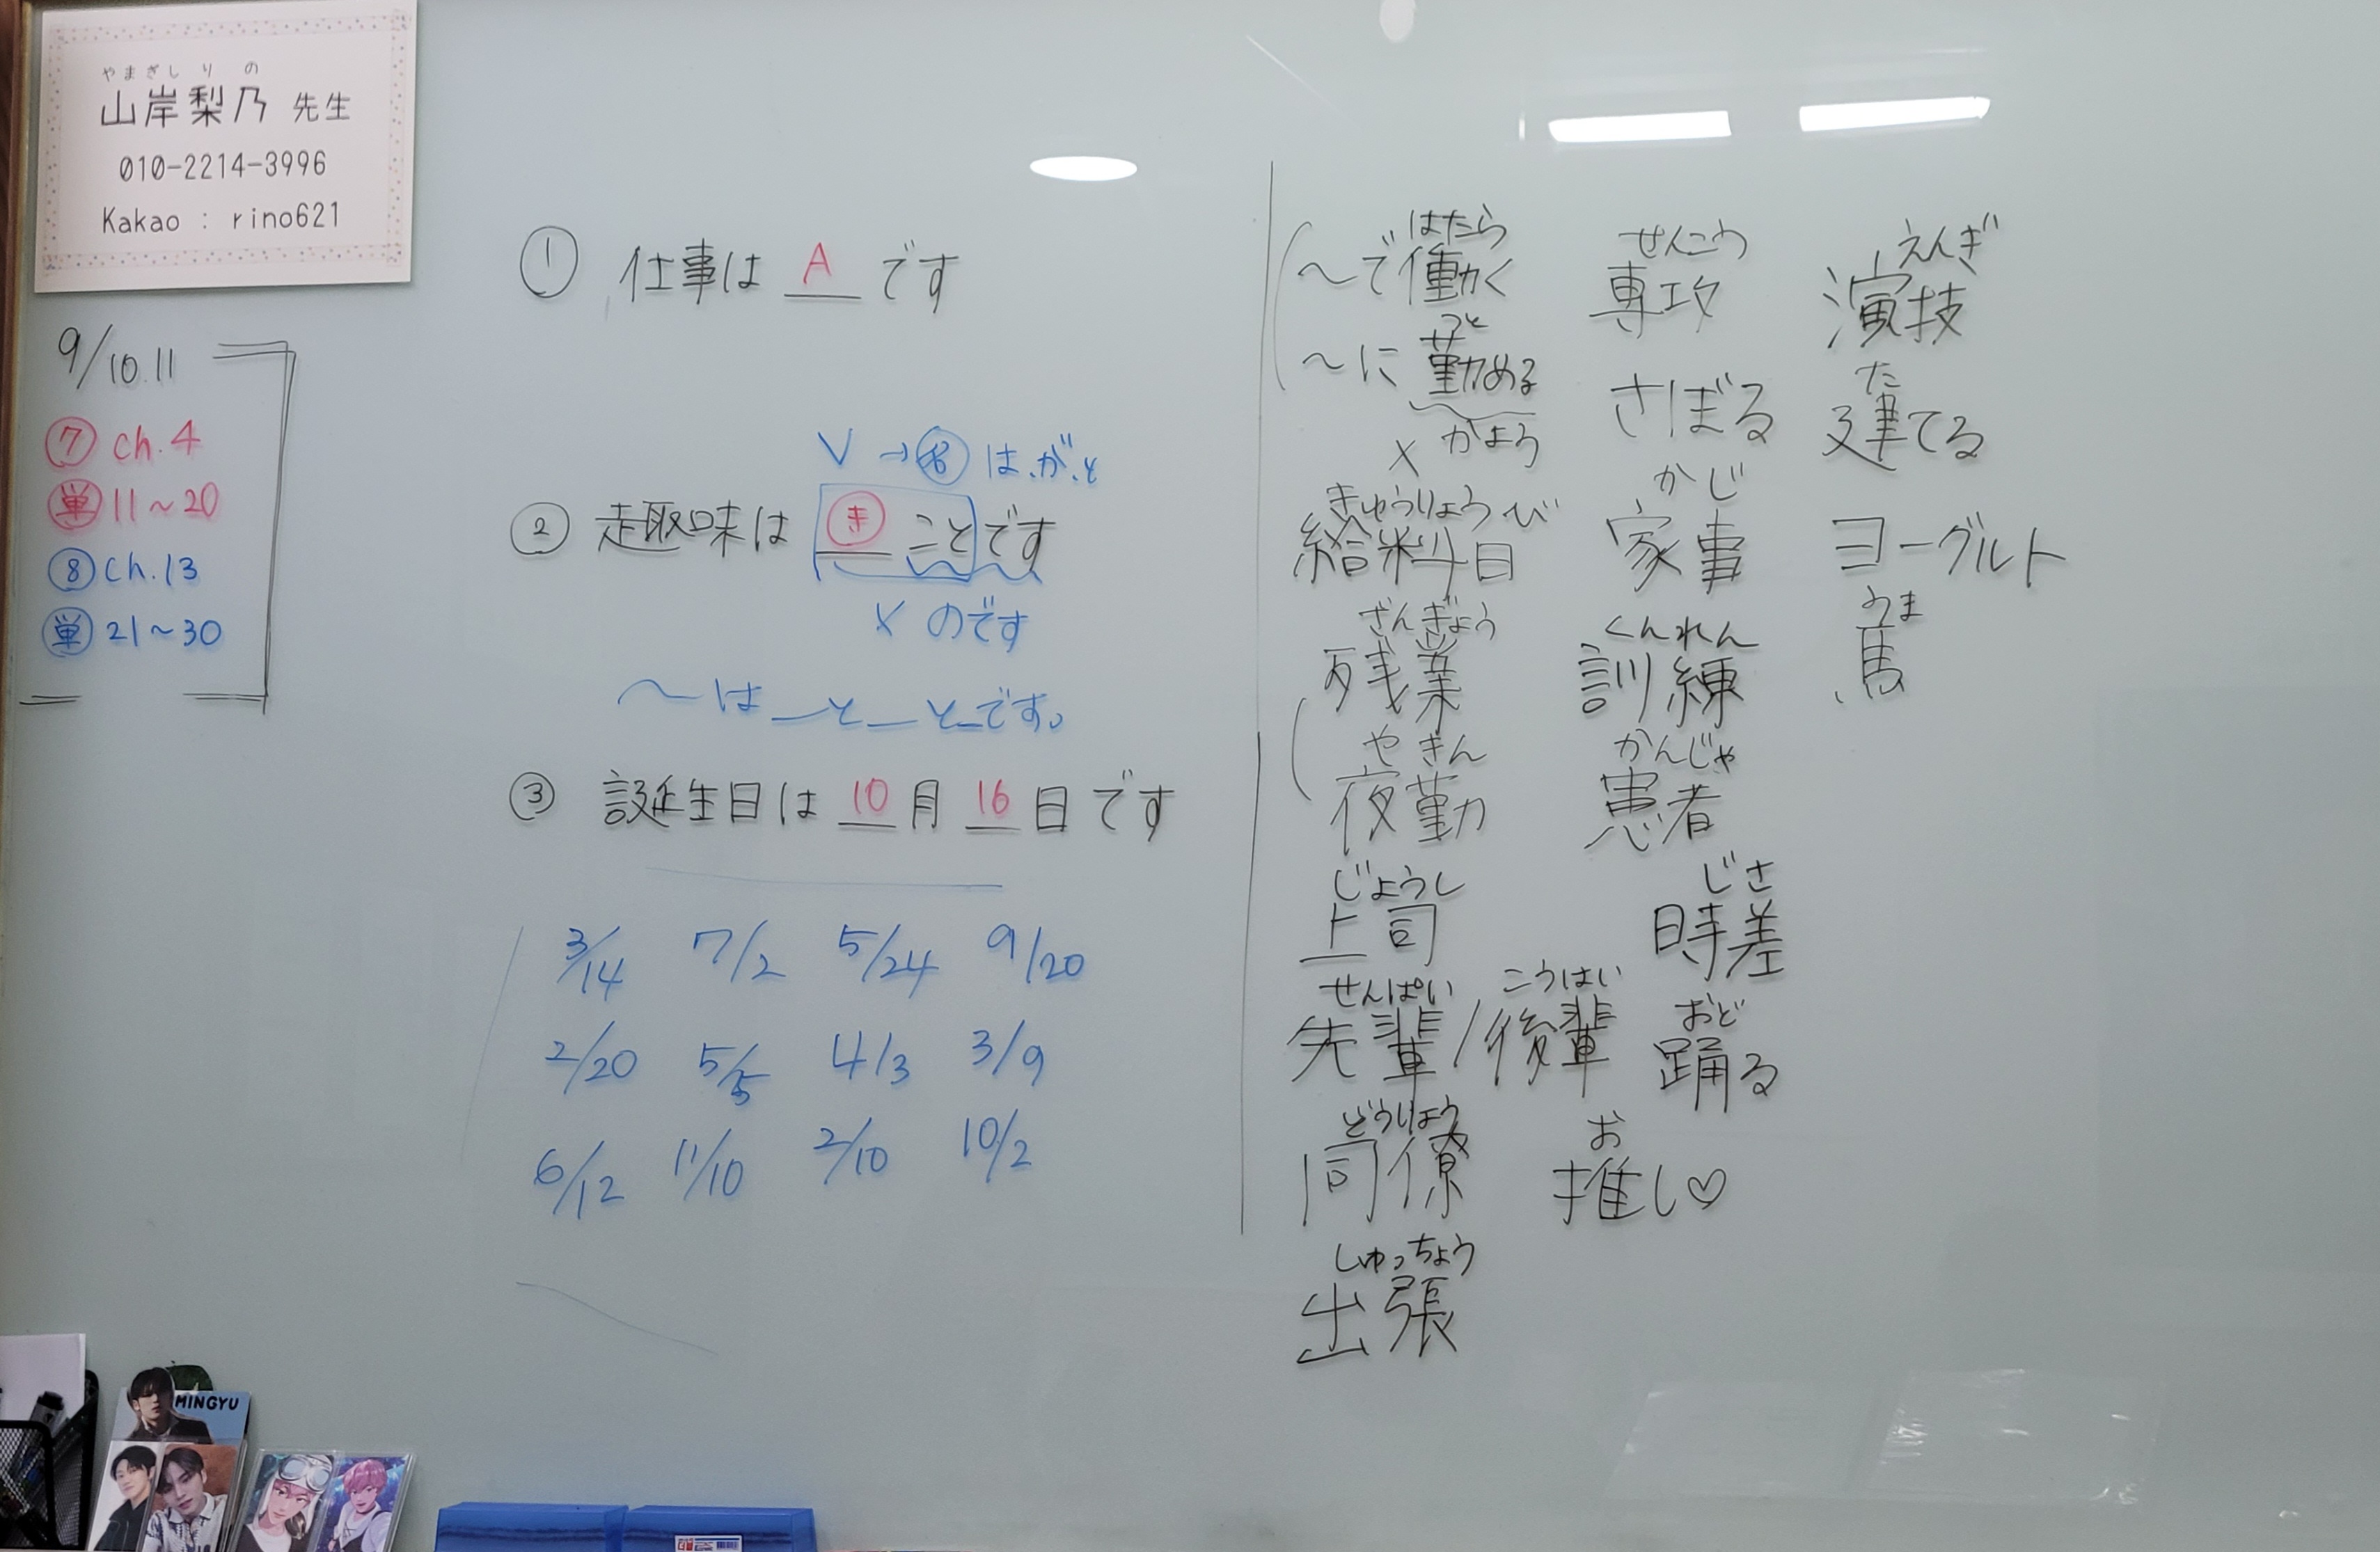 やまぎし りの
山岸梨乃 先生
010-2214-3996
Kakao : rino621
9/10.11
⑦ ch.4
単 11～20
⑧ ch.13
単 21～30
① 仕事は A です
V → は.が.と
② 趣味は ㋖ ことです
× のです
～は＿と＿と＿です。
③ 誕生日は 10 月 16 日です
3/14 7/2 5/24 9/20
2/20 5/5 4/3 3/9
6/12 11/10 2/10 10/2
はたら
～で働く
つと
～に勤める
× かよう
きゅうりょうび
給料日
ざんぎょう
残業
やきん
夜勤
じょうし
上司
せんぱい こうはい
先輩/後輩
どうりょう
同僚
しゅっちょう
出張
せんこう
専攻
さぼる
かじ
家事
くんれん
訓練
かんじゃ
患者
じさ
時差
おど
踊る
お
推し♡
えんぎ
演技
た
建てる
ヨーグルト
うま
馬
MINGYU